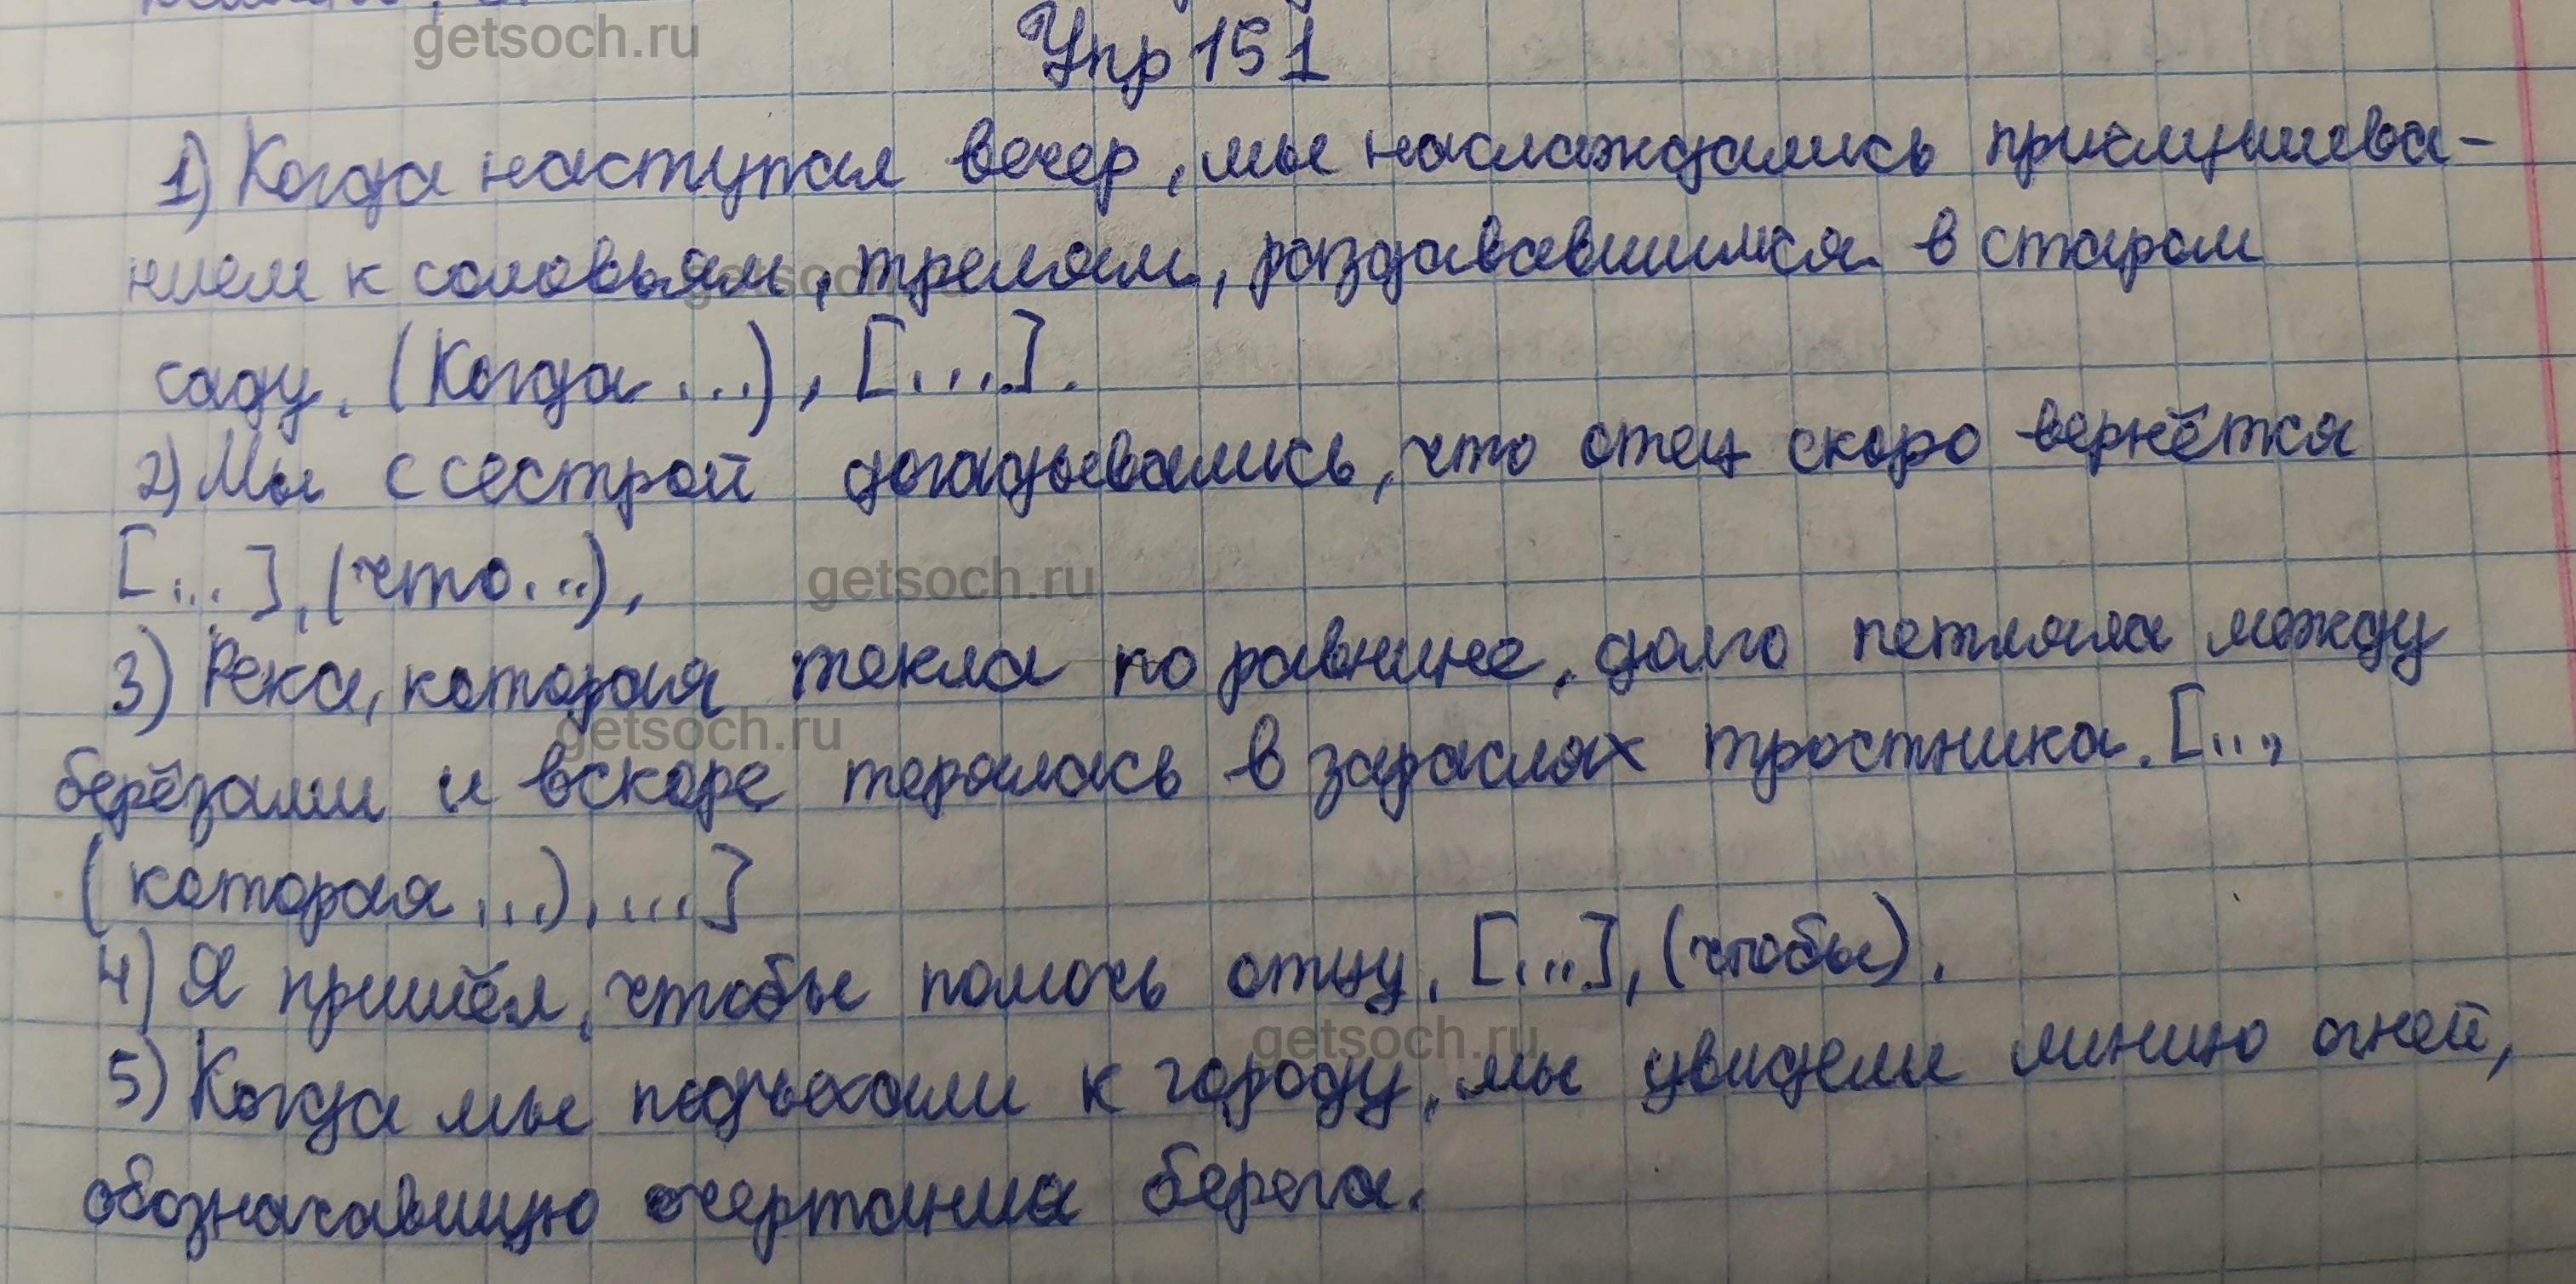 getsoch.ru
Упр 151
1) Когда наступал вечер, мы наслаждались прислушива-
нием к соловьям, трелям, раздававшимся в старом
getsoch.ru
саду. (Когда...), [....].
2) Мы с сестрой догадывались, что отец скоро вернётся
[...], (что...).
getsoch.ru
3) Река, которая текла по равнине, долго петляла между
getsoch.ru
берёзами и вскоре терялась в зарослях тростника. [...,
(которая...), ....]
4) Я пришёл, чтобы помочь отцу. [....], (чтобы).
getsoch.ru
5) Когда мы подъехали к городу, мы увидели линию огней,
обозначавшую очертания берега.